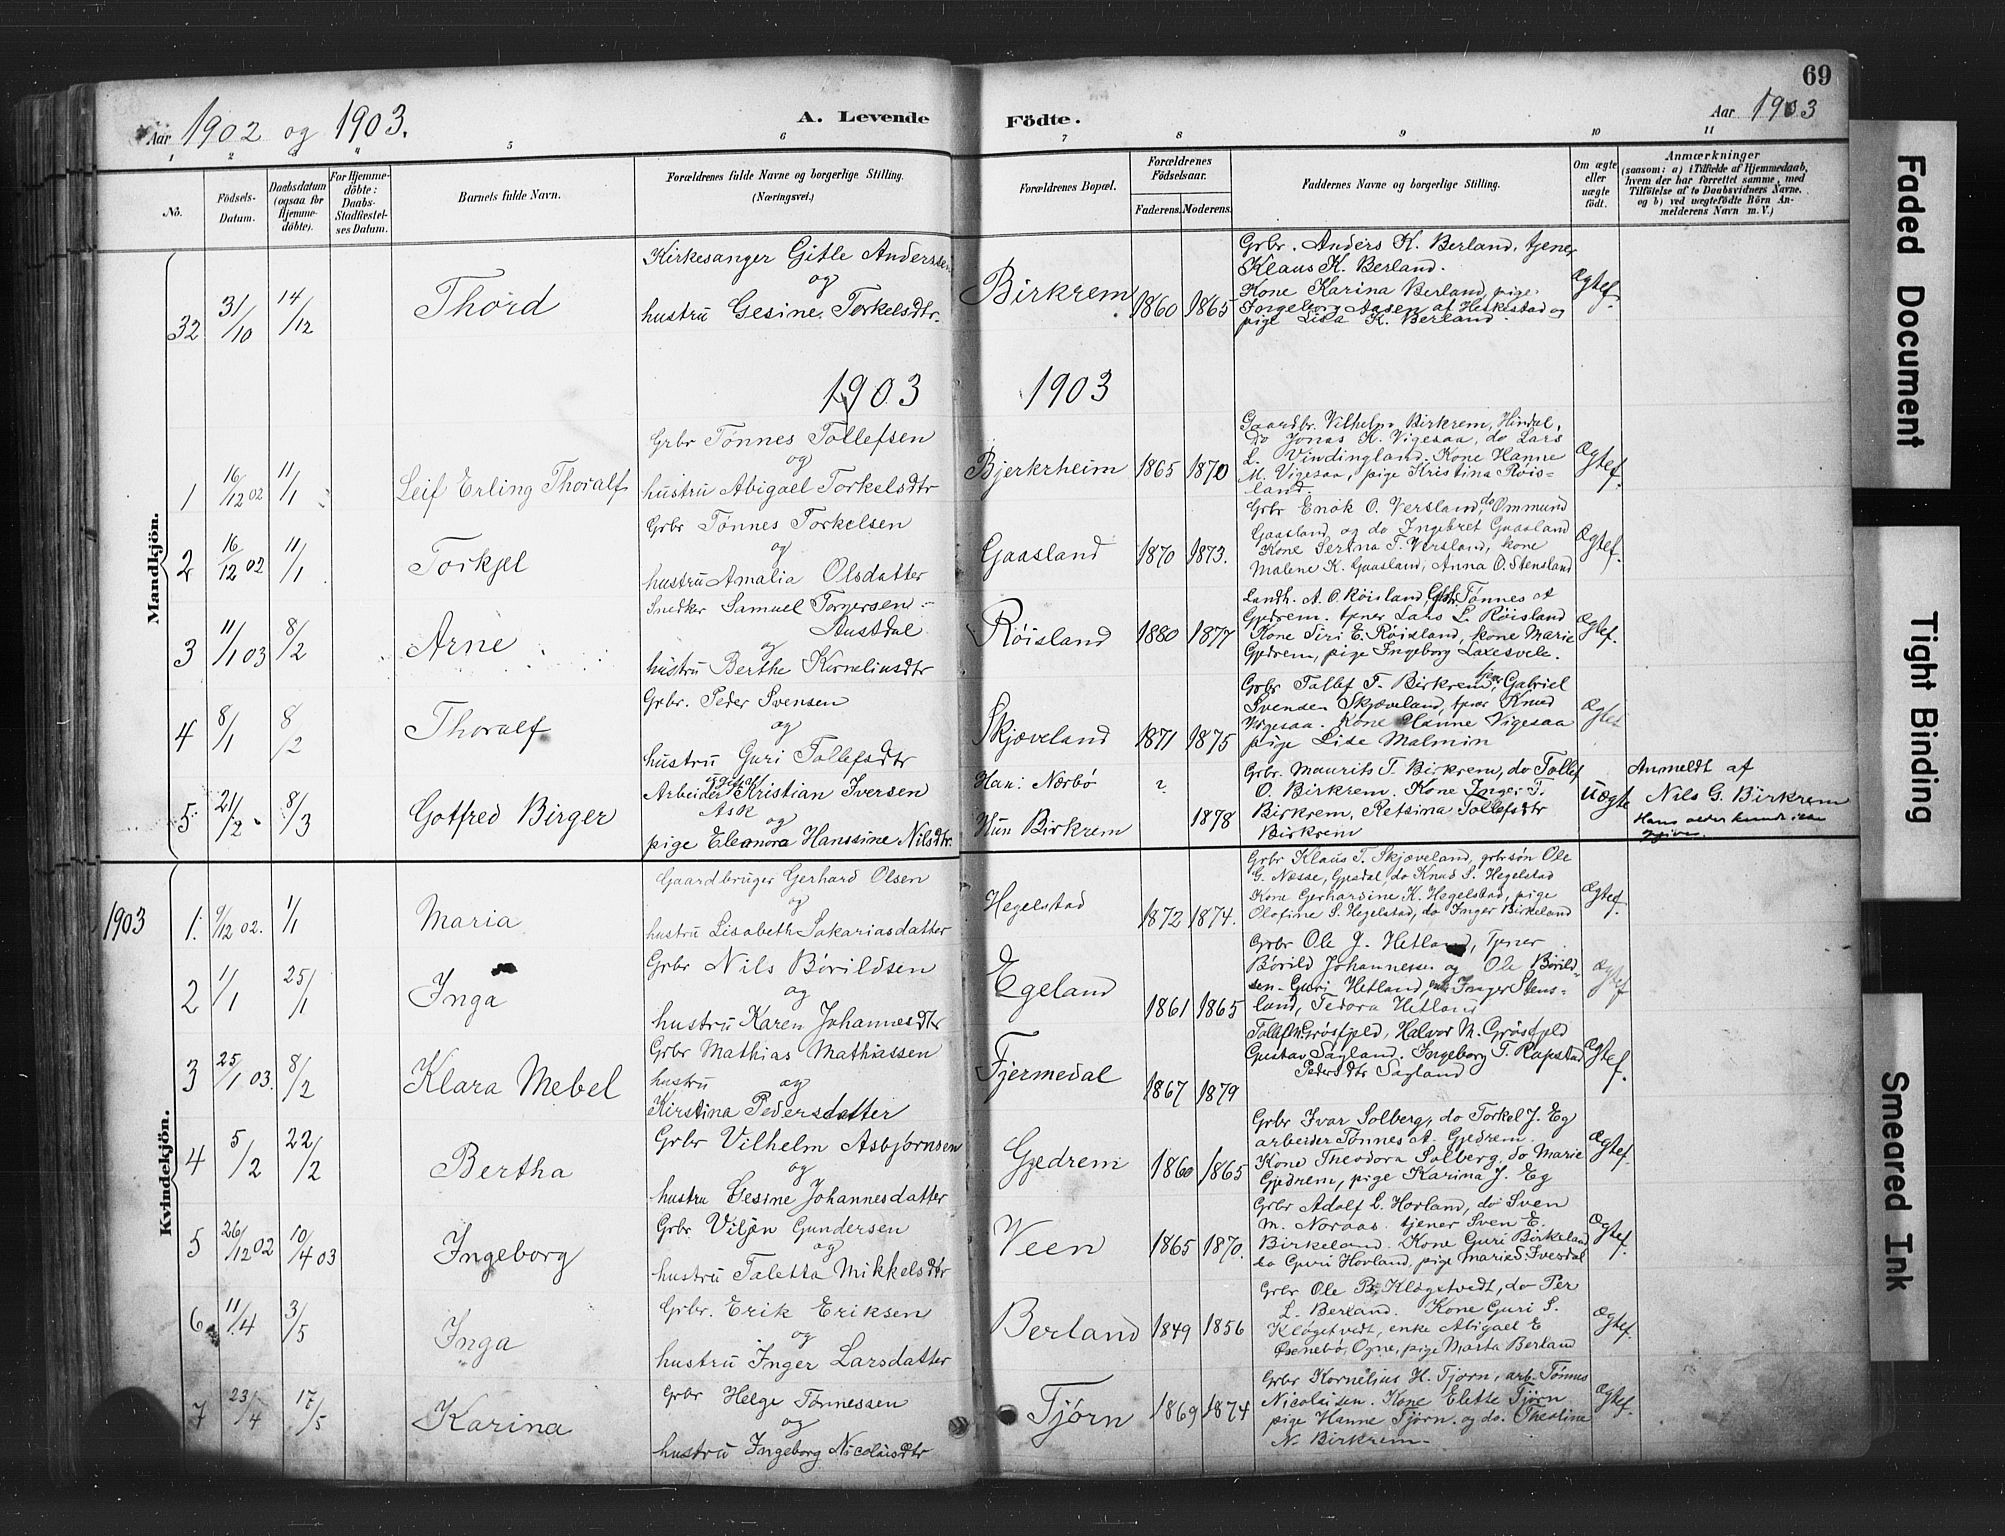 69
Aar 1902 og 1903.
A. Levende Fødte.
Aar 1903
1 2 3 4 5 6 7 8 9 10 11
No.
Fødsels-
Datum.
Daabsdatum
(ogsaa for
Hjemme-
døbte).
For Hjemme-
døbte:
Daabs-
Stadfæstel-
ses Datum.
Barnets fulde Navn.
Forældrenes fulde Navne og borgerlige Stilling.
(Næringsvei.)
Forældrenes Bopæl.
Forældrenes
Fødselsaar.
Faderens. Moderens.
Faddernes Navne og borgerlige Stilling.
Om ægte
eller
uægte
født.
Anmærkninger
(saasom: a) i Tilfælde af Hjemmedaab,
hvem der har forrettet samme, med
Tilføielse af to Daabsvidners Navne,
og b) ved uægtefødte Børn An-
melderens Navn m. V.)
Mandkjön.
32 31/10 14/12 Thord
Kirkesanger Gitle Anderssen
og
hustru Gesine Torkelsdtr.
Birkrem 1860 1865
Grbr. Anders K. Berland, tjener
Klaus K. Berland.
Kone Karina Berland, pige
Ingeborg Aasen af Helleestad og
pige Lisa K. Berland.
Ægtef.
1903 1903
1 16/12 02 11/1 Leif Erling Thoralf
Grbr Tønnes Tollefsen
og
hustru Abigael Torkelsdtr
Bjerkrheim 1865 1870
Gaardbr. Vilhelm Birkrem, Hindal,
do Jonas K. Vigesaa, do Lars
L. Vindingland. Kone Hanne
M. Vigesaa, pige Kristina Røis-
land.
Ægtef.
2 16/12 02 11/1 Torkjel
Grbr Tønnes Torkelsen
og
hustru Amalia Olsdatter
Gaasland 1870 1873.
Grbr Enok O. Versland, do Ommund
Gaasland og do Ingebret Gaasland
Kone Serina T. Versland, kone
Malene K. Gaasland, Anna O. Stensland
Ægtef.
3 11/1 03 8/2 Arne
Snedker Samuel Torgersen
Austdal
og
hustru Berthe Korneliusdtr
Røisland 1880 1877
Landh. A. O. Røisland, Grbr Tønnes A
Gjedrem. tjener Lars L. Røisland
Kone Siri E. Røisland, kone Marie
Gjedrem, pige Ingeborg Laxesvele.
Ægtef.
4 8/1 8/2 Thoralf
Grbr. Peder Svensen
og
hustru Guri Tollefsdtr
Skjæveland 1871 1875
Grbr Tallef T. Birkrem, tjner Gabriel
Svensen Skjæveland, tjner Knud
Vigesaa. Kone Hanne Vigesaa
pige Lise Malmin
Ægtef
5 21/2 8/3 Gotfred Birger
Arbeider ugift Kristian Iversen
Ask og
pige Eleonora Hanssine Nilsdtr.
Han: Nærbø ?
Hun Birkrem 1878
Grbr. Maurits T. Birkrem, do Tollef
O. Birkrem. Kone Inger T.
Birkrem, Retsina Tollefsdtr
Birkrem
Uægte
Anmeldt af
Nils G. Birkrem
Hans alder kunde ikke
opgives.
Kvindekjön.
1903
1. 9/12 02. 1/1 Maria
Gaardbruger Gerhard Olsen
og
hustru Lisabeth Sakariasdatter
Hegelstad 1872 1874.
Grbr Klaus T. Skjæveland, grbrsøn Ole
G. Næsse, Gjesdal, do Knud S. Hegelstad
Kone Gerhardine K. Hegelstad, pige
Olofine S. Hegelstad, do Inger Birkeland
Ægtef.
2 1/1 25/1 Inga
Grbr Nils Børildsen
og
hustru Karen Johannesdtr
Egeland 1861 1865
Grbr Ole J. Hetland, Tjener
Børild Johannessen og Ole Børild-
sen. Guri Hetland, enke Inger Stens-
land, Tedora Hetland
Ægtef
3 25/1 03. 8/2 Klara Mebel
Grbr Mathias Mathiassen
hustru og
Kirstina Pedersdatter
Fjermedal 1867 1879
Tollef M. Grøsfjeld, Halvor M. Grøsfjeld
Gustav Sagland. Ingeborg T. Rapstad
Pedersdtr Sagland
Ægtef.
4 5/2 22/2 Bertha
Grbr Vilhelm Asbjørnsen
og
hustru Gesine Johannesdatter
Gjedrem 1860 1865
Grbr Ivar Solberg, do Torkel J. Eg
arbeider Tønnes A. Gjedrem.
Kone Theodora Solberg, do Marie
Gjedrem, pige Karina J. Eg
Ægtef.
5 26/12 02 10/4 03 Ingeborg
Grbr Viljen Gundersen
og
hustru Taletta Mikkelsdtr
Veen 1865 1870.
Grbr Adolf L. Hovland, do Sven
M. Noraas. tjener Sven E.
Birkeland. Kone Guri Birkeland
do Guri Hovland, pige Marie S. Ivesdal
Ægtef.
6 11/4 3/5 Inga
Grbr. Erik Eriksen
og
hustru Inger Larsdatter
Berland 1849 1856
Grbr Ole P. Kløgetvedt, do Per
L. Berland. Kone Guri S.
Kløgetvedt, enke Abigael E
Øsenebø, Ogne, pige Marta Berland
Ægtef.
7 23/4 17/5 Karina
Grbr Helge Tønnessen
og
hustru Ingeborg Nicolaisdtr
Tjørn 1869 1874
Grbr Kornelius H. Tjørn, arb. Tønnes
Nicolaisen. Kone Elette Tjørn
pige Hanne Tjørn. og do. Theoline
N. Birkrem.
Ægtef.
Faded Document
Tight Binding
Smeared Ink